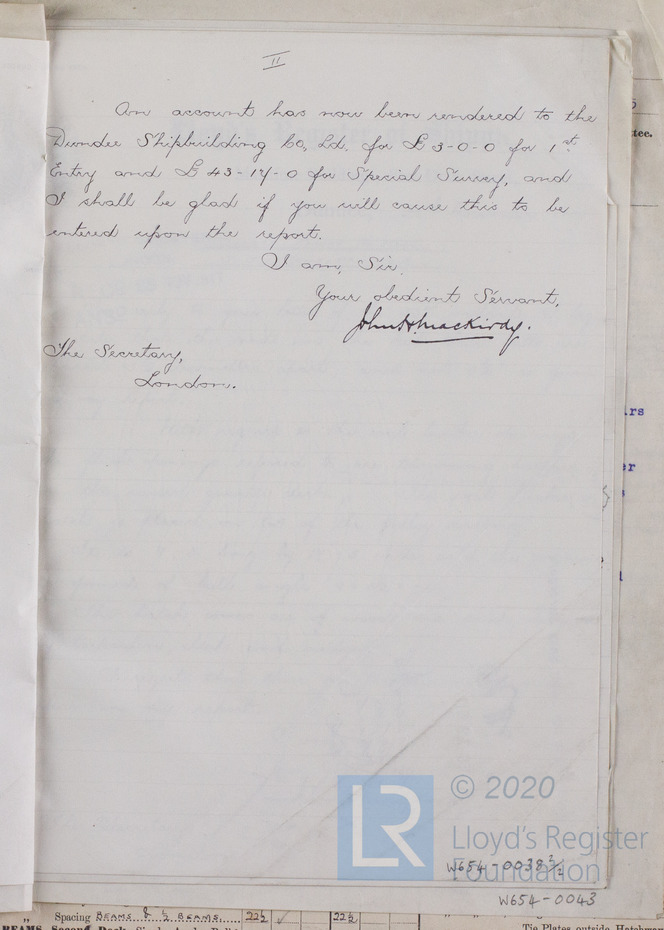 II
An account has now been rendered to the
Dundee Shipbuilding Co, Ld. for £3-0-0 for 1st
Entry and £43-17-0 for Special Survey, and
I shall be glad if you will cause this to be
entered upon the report.
I am, Sir.
Your obedient Servant,
John H. Mackirdy.
The Secretary,
London.
tee.
LR
© 2020
Lloyd's Register
Foundation
W654-0038 2/2
W654-0043
" Spacing BEAMS & ½ BEAMS. 22½ ✓ 22½ " "
BEAMS, Second Deck, Single Angle, Bulb Tie Plates outside Hatchway